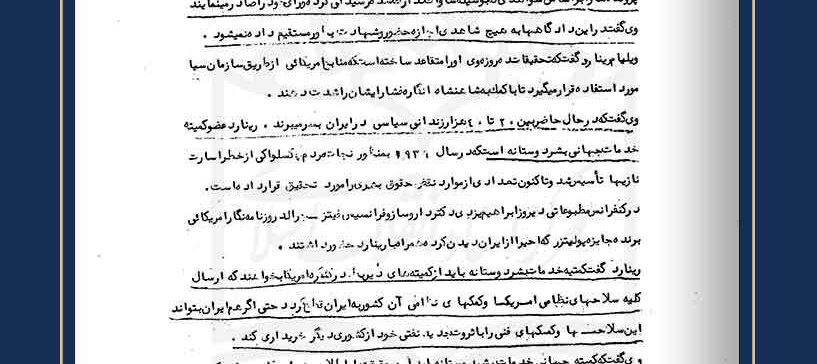 وی گفت در این دادگاهها به هیچ شاهدی اجازه حضور و شهادت بطور مستقیم داده نمیشود .
ویلیام رینارد گفت که تحقیقات دو روزه وی او را متقاعد ساخته است که منابع امریکائی از طریق سازمان سیا
مورد استفاده قرار میگیرد تا به شاهنشاه فشار ایشان را شدت دهند .
وی گفت که در حال حاضر بین ۲۰ تا ۴۰ هزار زندانی سیاسی در ایران بسر میبرند . رینارد عضو کمیته
خدمات جهانی بشردوستانه است که در سال ۱۹۳۹ بمنظور نجات مردم چکسلواکی از خطر اسارت
نازیها تأسیس شد و تاکنون تعدادی از موارد نقض حقوق بشری را مورد تحقیق قرار داده است .
در کنفرانس مطبوعاتی دیروز ابراهیم یزدی دکتر داروساز و فرانسیس فیتز جرالد روزنامه نگار امریکائی
برنده جایزه پولیتزر که اخیرا از ایران دیدن کرده همراه با رینارد حضور داشتند .
رینارد گفت کمیته خدمات بشردوستانه باید از کمیته های ذیربط در کنگره امریکا بخواهند که ارسال
کلیه سلاحهای نظامی امریکا و کمکهای نظامی آن کشور به ایران قطع گردد حتی اگر هم ایران بتواند
این سلاحها و کمکهای فنی را با ثروت جدید نفتی خود از کشوری دیگر خریداری کند .